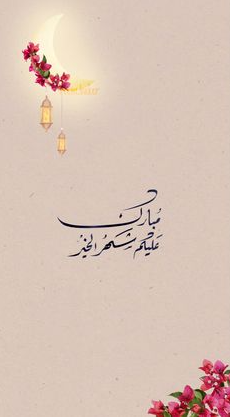 مُبارك
عَليكم شَهرُ الخيرُ